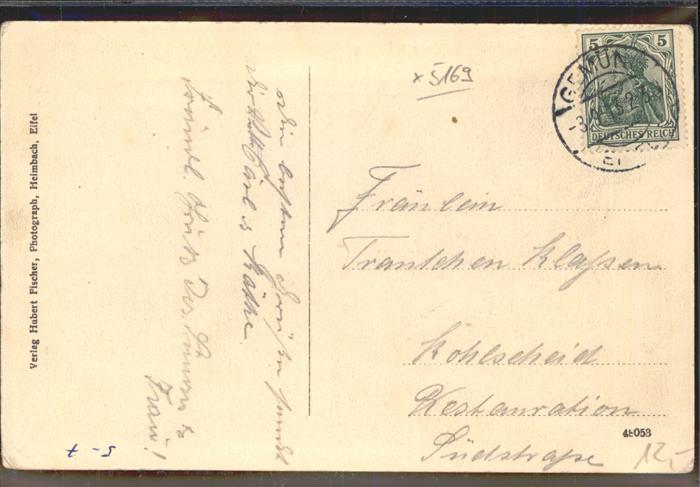 Verlag Hubert Fischer, Photograph, Heimbach, Eifel
Die besten Grüße sendet
Carl & Käthe
Freundl. Grüße
Frau!
× 5169
5 5
DEUTSCHES REICH
GEMÜN
Fräulein
Trautchen Klaßen
Kohlscheid
Restauration
Südstraße
48053
12,-
5-7